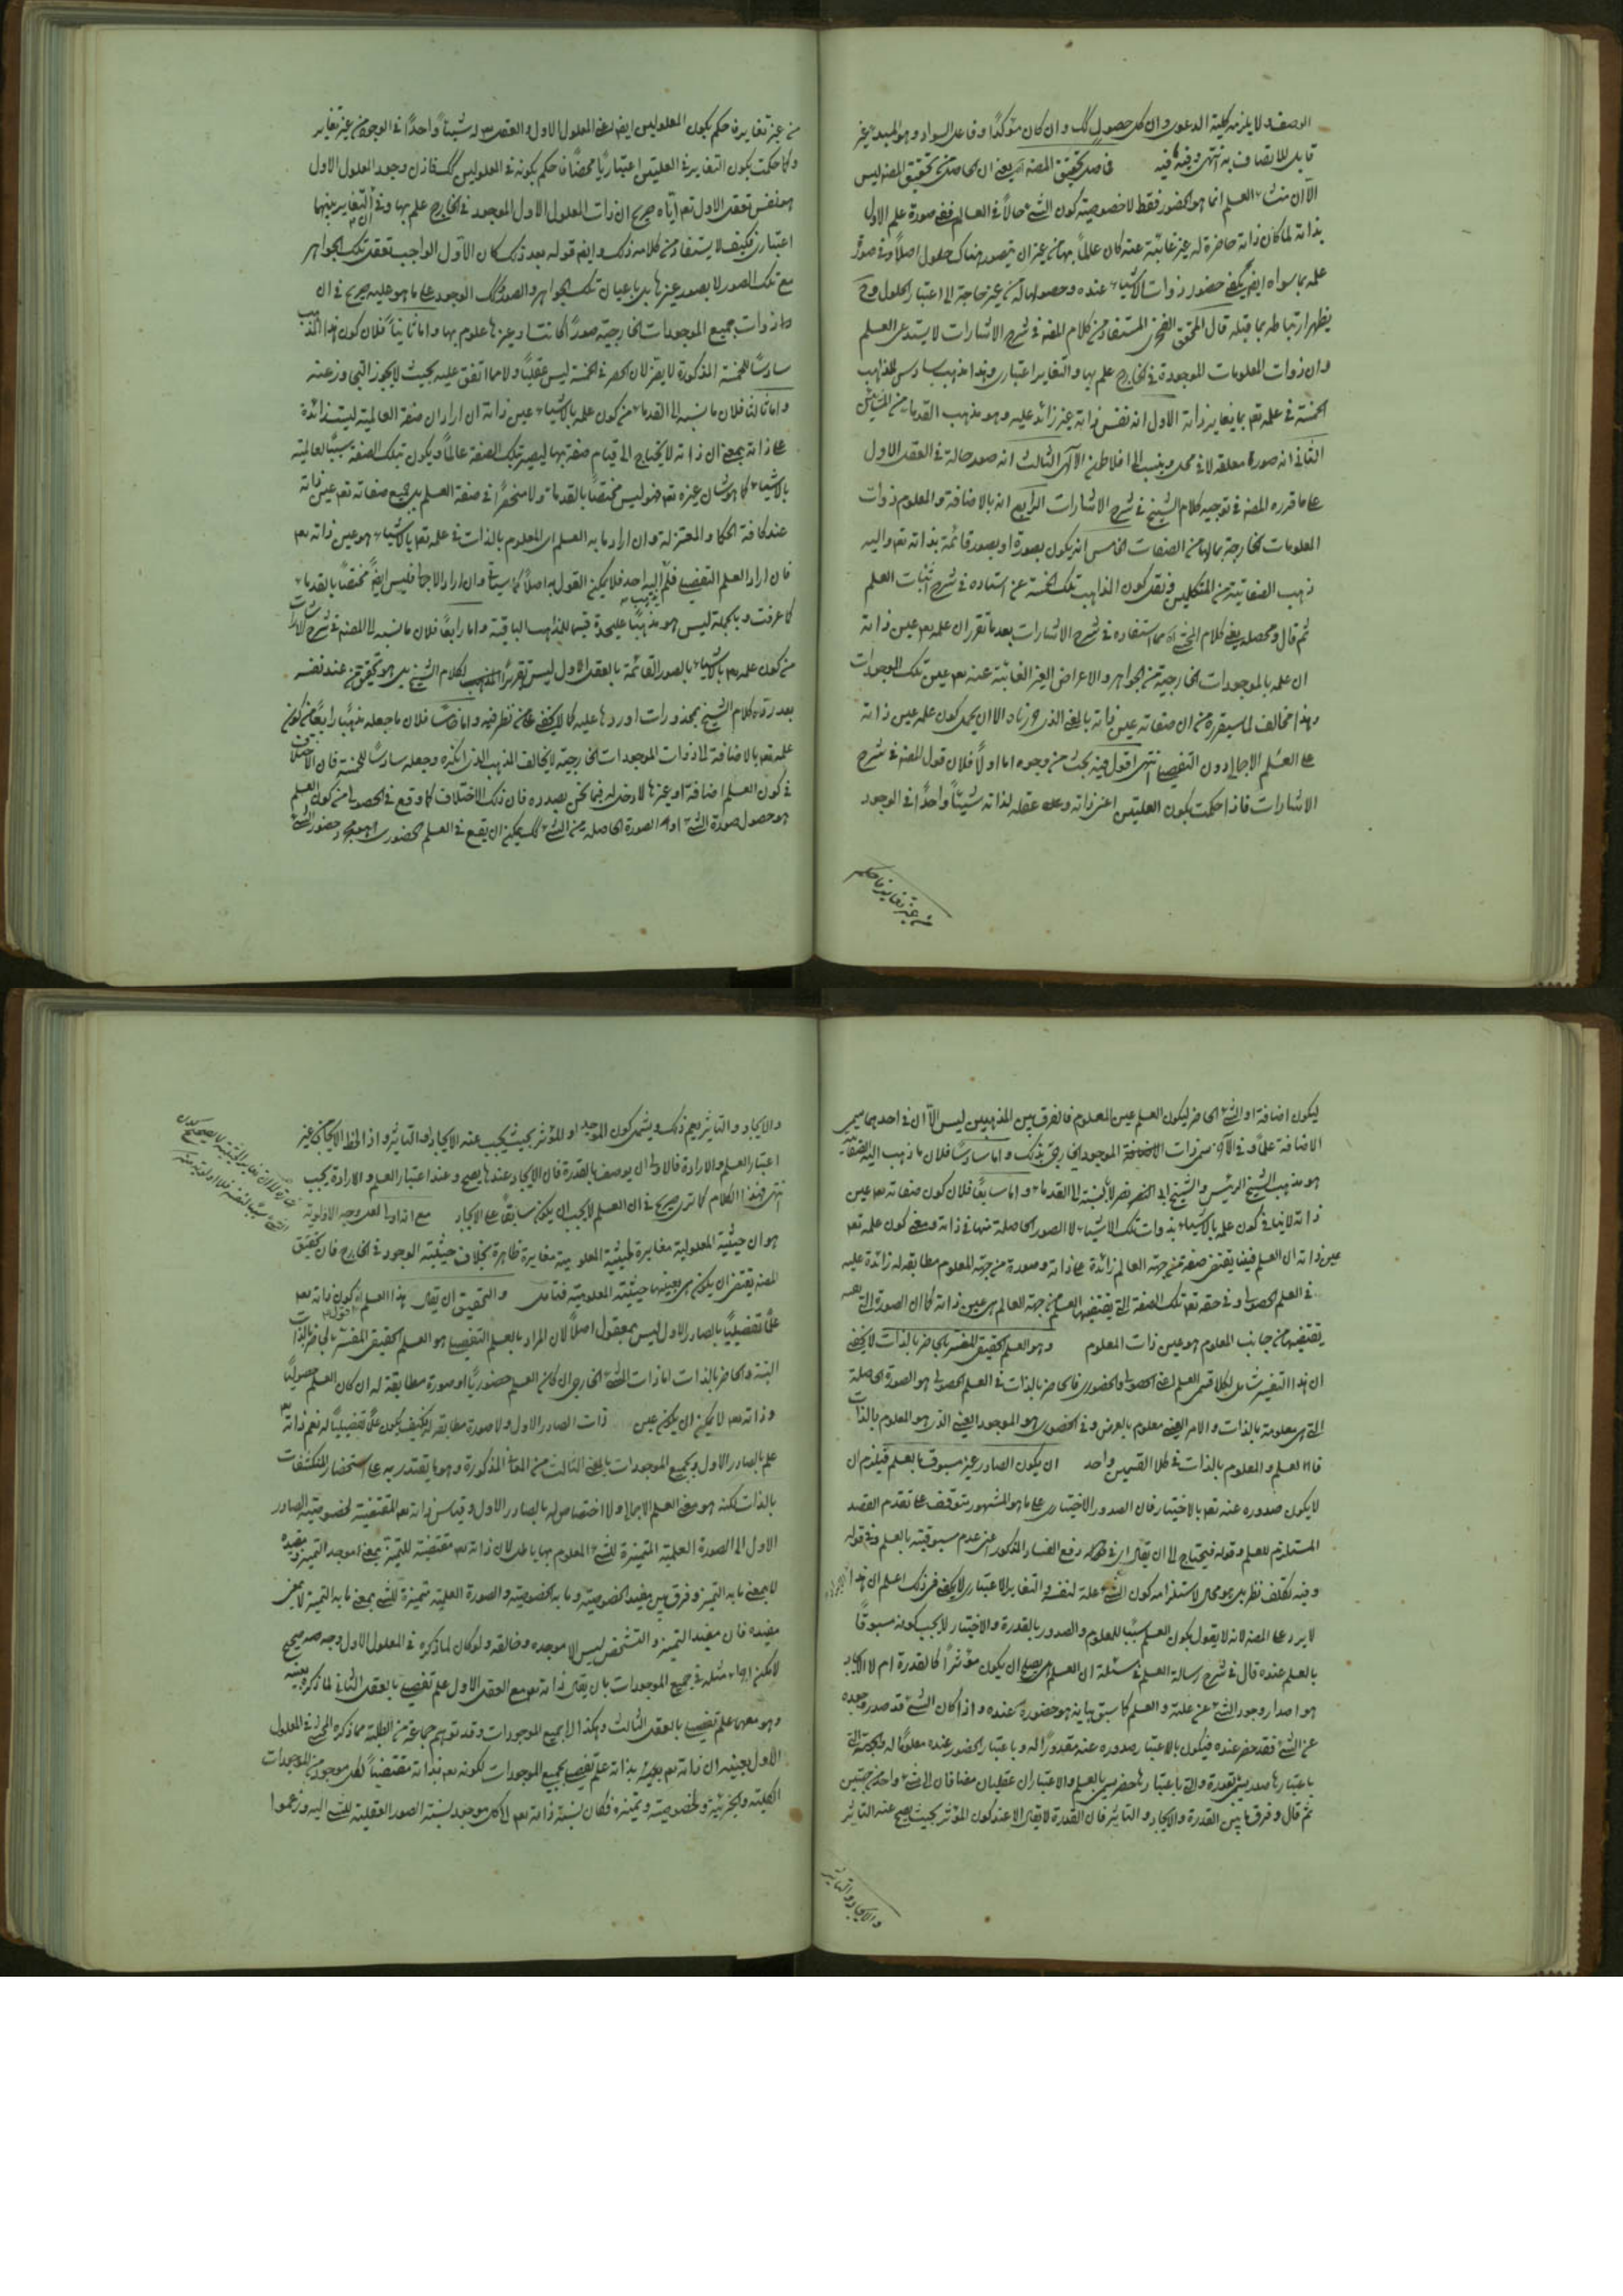 الوصف ولا يلزمه كلية الدعوى وان كل حصول كك وان كان مؤكدا وفاعل السواد وهو المبدء غير
قابل للاتصاف به انتهى وفيه ما فيه فاصل تحقيق المصنف يعنى ان الحاصل من تحقيق المصنف ليس
الا ان منشاء العلم انما هو الحضور فقط لا خصوصية كون الشئ حالا فى العالم ففى صورة علم الاول
بذاته لما كان ذاته حاضرة له غير غائبة عنه كان عالما بها من غير ان يتصور هناك حلول اصلا وفى صورة
علمه بما سواه ايضا يكفى حضور ذوات الاشياء عنده وحصولها له من غير حاجة الى اعتبار الحلول وح
يظهر ارتباطه بما قبله قال المحقق الفخرى المستفاد من كلام المصنف فى شرح الاشارات لا يستدعى العلم
وان ذوات المعلومات الموجودة فى الخارج علم بها والتغاير اعتبارى وهذا مذهب سادس للمذاهب
الخمسة فى علمه تعم بما يغاير ذاته الاول انه نفس ذاته غير زائد عليه وهو مذهب القدماء من المشائين
الثانى انه صورة معلقة لا فى محل وينسب الى افلاطن الالهى الثالث انه صور حالة فى العقل الاول
على ما قرره المصنف فى توجيه كلام الشيخ فى شرح الاشارات الرابع انه بالاضافة والمعلوم ذوات
المعلومات الخارجة بمالها من الصفات الخامس انه يكون بصورة او بصور قائمة بذاته تعم واليه
ذهب الصفاتية من المتكلمين ونقل كون المذاهب تلك الخمسة عن استاده فى شرح اثبات العلم
ثم قال ومحصله يعنى كلام المحشى انه مما استفاده فى شرح الاشارات بعد ما تقرر ان علمه تعم عين ذاته
ان علمه بالموجودات الخارجية من الجواهر والاعراض الغير الغائبة عنه تعم عين تلك الموجودات
وهذا مخالف لما سيقرره من ان صفاته عين ذاته بالمعنى الذى حررناه الا ان يحمل كون علمه عين ذاته
على العلم الاجمالى دون التفصيلى انتهى اقول فيه بحث من وجوه اما اولا فلان قول المصنف فى شرح
الاشارات فاذا حكمت بكون العلتين اعنى ذاته وعلة عقله لذاته شيئا واحدا فى الوجود
من غير تغاير فاحكم
من غير تغاير فاحكم بكون المعلولين ايضا اعنى المعلول الاول والعقل له شيئا واحدا فى الوجود من غير تغاير
وكما حكمت بكون التغاير فى العلتين اعتباريا محضا فاحكم بكونه فى المعلولين كك فاذن وجود المعلول الاول
هو نفس تعقل الاول تعم اياه صريح ان ذات المعلول الاول الموجود فى الخارج علم بها وفى ان التغاير بينهما
اعتبارى فكيف لا يستفاد من كلامه ذلك وايضا قوله بعد ذلك كان الاول الواجب تعقل تلك الجواهر
مع تلك الصور لا بصور غيرها بل باعيان تلك الجواهر والصور وكك الوجود على ما هو عليه صريح فى ان
ذوات جميع الموجودات الخارجية صورا كانت او غيرها علوم بها واما ثانيا فلان كون هذا المذهب
سادسا للخمسة المذكورة لا يضر لان الحصر فى الخمسة ليس عقليا ولا مما اتفق عليه بحيث لا يجوز التجاوز عنه
واما ثالثا فلان ما نسبه الى القدماء من كون علمه بالاشياء عين ذاته ان اراد ان صفة العالمية ليست زائدة
على ذاته بمعنى ان ذاته لا يحتاج الى قيام صفة بها ليصير بتلك الصفة عالما ويكون تلك الصفة سببا لعالمية
بالاشياء كما هو شان غيره تعم فهو ليس مختصا بالقدماء ولا منحصرا فى صفة العلم بل جميع صفاته تعم عين ذاته
عند كافة الحكماء والمعتزلة وان اراد ما به العلم اى المعلوم بالذات فى علمه تعم بالاشياء هو عين ذاته تعم
فان اراد العلم التفصيلى فلم يذهب اليه احد فلا يمكن القول به اصلا كما سيأتى وان اراد الاجمالى فليس ايضا مختصا بالقدماء
كما عرفت وبالجملة ليس هو مذهبا عليحدة قسيما للمذاهب الباقية واما رابعا فلان ما نسبه الى المصنف فى شرح الاشارات
من كون علمه تعم بالاشياء بالصور القائمة بالعقل الاول ليس تقريرا لكلام الشيخ بل هو تحقيق من عند نفسه
بعد رده كلام الشيخ بمحذورات اوردها عليه كما لا يخفى على من نظر فيه واما خامسا فلان ما جعله مذهبا رابعا من كون
علمه تعم بالاضافة الى ذوات الموجودات الخارجية لا يخالف المذهب الذى انكره وجعله سادسا للخمسة فان الاختلاف
فى كون العلم اضافة او غيرها لا دخل له فيما نحن بصدده فان ذلك الاختلاف كما وقع فى الحصولى من كون العلم
هو حصول صورة الشئ او الصورة الحاصلة من الشئ كك يمكن ان يقع فى العلم الحضورى اهو مجرد حضور الشئ
ليكون اضافة او الشئ الحاضر ليكون العلم عين المعلوم فالفرق بين المذهبين ليس الا ان فى احدهما سمى
الاضافة علما وفى الاخر سمى ذات الموجود الخارجى بذلك واما سادسا فلان ما ذهب اليه الصفاتية
هو مذهب الشيخ الرئيس والشيخ ابى النصر نصر لا بالنسبة الى القدماء واما سابعا فلان كون صفاته تعم عين
ذاته لا ينافى كون علمه بالاشياء بذوات تلك الاشياء لا الصور الحاصلة منها فى ذاته ومعنى كون علمه تعم
عين ذاته ان العلم فينا يقتضى صفة من جهة العالم زائدة على ذاته وصورة من جهة المعلوم مطابقة له زائدة عليه
فى العلم الحصولى وفى حقه تعم تلك الصفة التى يقتضيها العلم من جهة العالم هى عين ذاته كما ان الصورة التى
يقتضيها من جانب المعلوم هو عين ذات المعلوم وهو العلم الحقيقى المفسر بالحاضر بالذات لا يخفى
ان هذا التفسير شامل لكلا قسمى العلم اعنى الحصولى والحضورى فالحاضر بالذات فى العلم الحصولى هو الصورة الحاصلة
التى هى معلومة بالذات والامر العينى معلوم بالعرض وفى الحضورى هو الموجود العينى الذى هو المعلوم بالذات
فالعلم والمعلوم بالذات فى كلا القسمين واحد ان يكون الصادر غير مسبوق بالعلم فيلزم ان
لا يكون صدوره عنه تعم بالاختيار فان الصدور الاختيارى على ما هو المشهور يتوقف على تقدم القصد
المستلزم للعلم وقوله فيحتاج الى ان يقال اى فى دفع الفساد المذكور اعنى عدم مسبوقيته بالعلم وفى قوله
وفيه تكلف نظر بل هو محال لاستلزامه كون الشئ علة لنفسه والتغاير الاعتبارى لا يكفى فى ذلك اعلم ان هذا
لا يرد على المصنف لانه لا يقول بكون العلم سببا للمعلوم والصدور بالقدرة والاختيار لا يجب كونه مسبوقا
بالعلم عنده قال فى شرح رسالة العلم فى مسئلة ان العلم هل يصلح ان يكون مؤثرا كالقدرة ام لا الايجاد
هو اصدار وجود الشئ عن علته والعلم كما سبق بيانه هو حضوره عنده واذا كان الشئ قد صدر وجوده
عن الشئ فقد حضر عنده فيكون بالاعتبار صدوره عنه مقدورا له وباعتبار الحضور عنده معلوما له والجهة التى
باعتبارها صدر يسمى بقدرة والتى باعتبارها حضر يسمى بالعلم والاعتباران عقليان مضافان الى شئ واحد من جهتين
ثم قال وفرق ما بين القدرة والايجاد والتاثير فان القدرة لا يقال الا عند كون المؤثر بحيث يصح عنه التاثير
والايجاد والتاثير
والايجاد والتاثير يعم ذلك ويشمل كون الموجد او المؤثر بحيث يجب عنه الايجاد او التاثير واذا لوحظ الايجاد من غير
اعتبار العلم والارادة فالاولى ان يوصف بالقدرة فان الايجاد عندها يصح وعند اعتبار العلم والارادة يجب
انتهى فهذا الكلام كما ترى صريح فى ان العلم لا يجب ان يكون سابقا على الايجاد مع انه اولى لعل وجه الاولوية
هو ان حيثية المعلولية مغايرة لحيثية المعلومية مغايرة ظاهرة بخلاف حيثية الوجود فى الخارج فان تحقيق
المصنف يقتضى ان يكون هى بعينها حيثية المعلومية فتامل والتحقيق ان يقال هذا العلم اقول كون ذاته تعم
علما تفصيليا بالصادر الاول ليس بمعقول اصلا لان المراد بالعلم التفصيلى هو العلم الحقيقى المفسر بالحاضر بالذات
البتة والحاضر بالذات اما ذات الشئ الخارجى ان كان العلم حضوريا او صورة مطابقة له ان كان العلم حصوليا
وذاته تعم لا يمكن ان يكون عين ذات الصادر الاول ولا صورة مطابقة له فكيف يكون علما تفصيليا له نعم ذاته تعم
علم بالصادر الاول وبجميع الموجودات بالمعنى الثالث من المعانى المذكورة وهو ما يقتدر به على استحضار المنكشفات
بالذات لكنه هو معنى العلم الاجمالى ولا اختصاص له بالصادر الاول وقياس ذاته تعم المقتضية لخصوصية الصادر
الاول الى الصورة العلمية المتميزة للشئ المعلوم بها باطل لان ذاته تعم مقتضية للتميز بمعنى موجد التميز ومفيده
لا بمعنى ما به التميز وفرق بين مفيد الخصوصية وما به الخصوصية والصورة العلمية متميزة للشئ بمعنى ما به التميز لا بمعنى
مفيده فان مفيد التميز والتشخص ليس الا موجده وخالقه ولو كان لما ذكره فى المعلول الاول وجه صحيح
لامكن اجراء مثله فى جميع الموجودات بان يقال ذاته تعم مع العقل الاول علم تفصيلى بالعقل الثانى لما ذكره بعينه
وهو معهما علم تفصيلى بالعقل الثالث وهكذا الى جميع الموجودات وقد توهم جماعة من الطلبة مما ذكره المحشى فى المعلول
الاول بعينه ان ذاته تعم بعينه بذاته علم تفصيلى بجميع الموجودات لكونه تعم بذاته مقتضيا لكل موجود من الموجودات
الكلية والجزئية ولخصوصيته وتميزه فكان نسبة ذاته تعم الى كل موجود نسبة الصور العقلية للشئ اليه وزعموا